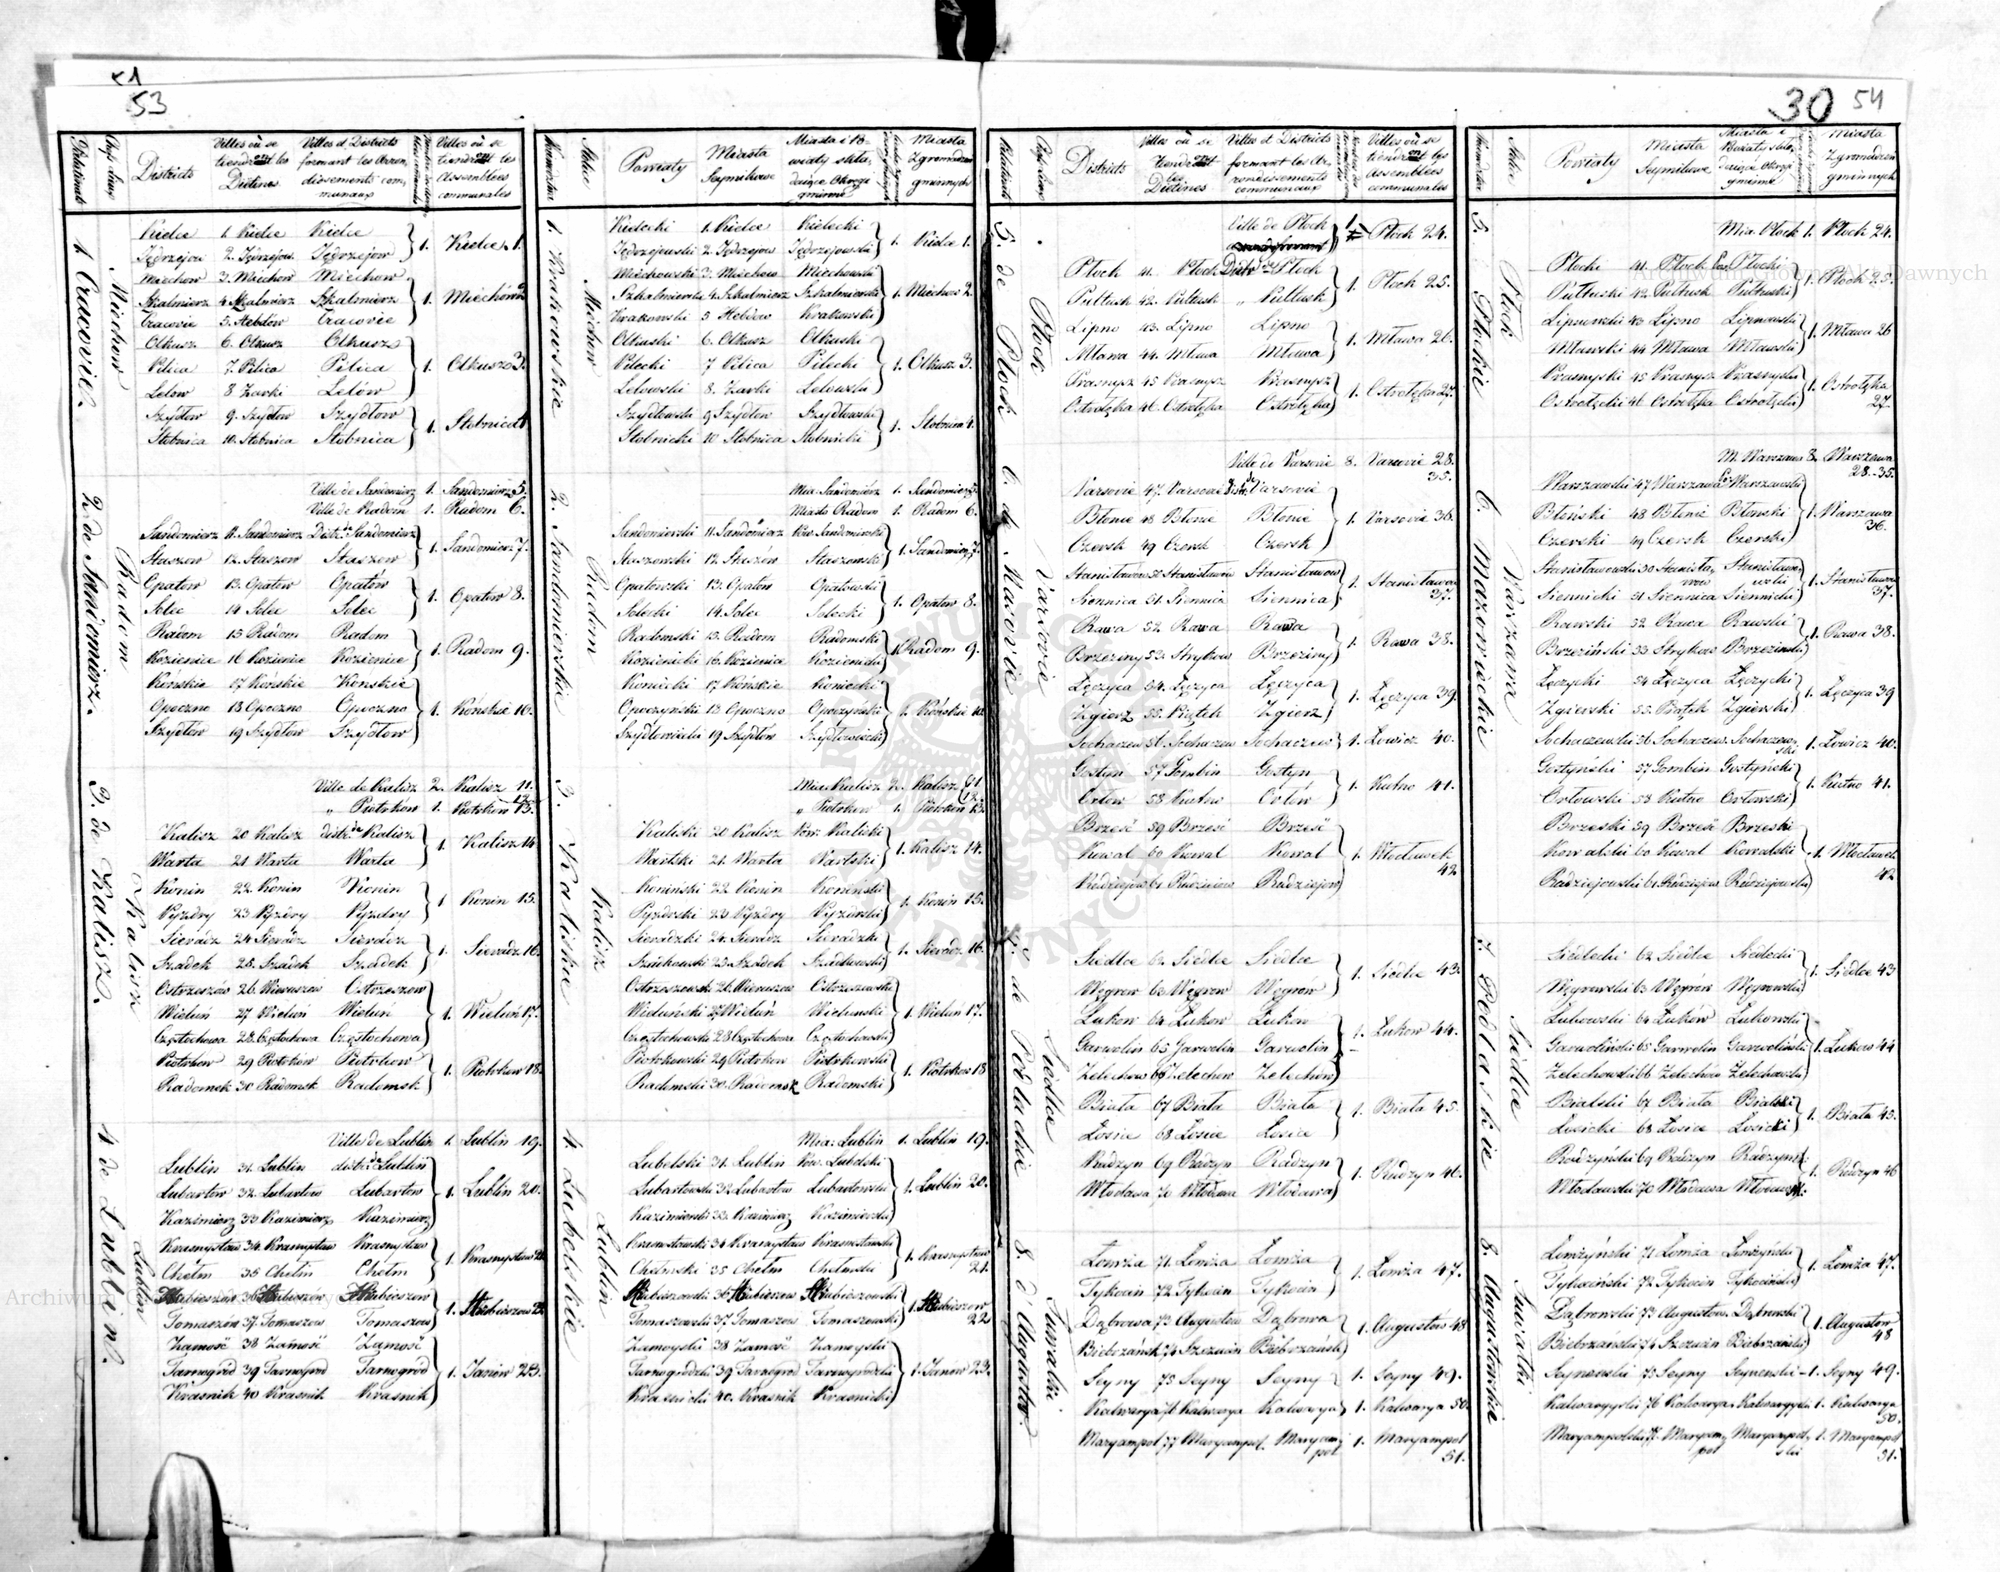 51
53
30 54
Districts
Villes où se tiendront les Diétines
Villes et Districts formant les Arrondissements communaux
Villes où se tiendront les Assemblées communales
1. Cracovie.
Miechow
Kielce 1. Kielce Kielce } 1. Kielce 1.
Jędrzejow 2. Jędrzejow Jędrzejow
Miechow 3. Miechow Miechow } 1. Miechów 2.
Szkalmierz 4. Szkalmierz Szkalmierz
Cracovie 5. Hebdow Cracovie
Olkusz 6. Olkusz Olkusz } 1. Olkusz 3.
Pilica 7. Pilica Pilica
Lelow 8 Żarki Lelów
Szydłow 9. Szydłow Szydłow } 1. Stobnica 4
Stobnica 10. Stobnica Stobnica
2. de Sandomierz.
Radom
Ville de Sandomierz 1. Sandomierz 5.
Ville de Radom 1. Radom 6.
Sandomierz 11. Sandomierz Distr. de Sandomierz } 1. Sandomierz 7.
Staszow 12. Staszow Staszow
Opatow 13. Opatow Opatów } 1. Opatow 8.
Solec 14 Solec Solec
Radom 15 Radom Radom } 1. Radom 9.
Kozienice 16 Kozienice Kozienice
Końskie 17 Końskie Konskie } 1. Końskie 10.
Opoczno 18 Opoczno Opoczno
Szydłow 19 Szydłow Szydłow
3. de Kalisz.
Kalisz
Ville de Kalisz 2. Kalisz 11. 12.
" Piotrkow 1. Piotrkow 13.
Kalisz 20 Kalisz distr. de Kalisz } 1. Kalisz 14
Warta 21 Warta Warta
Konin 22 Konin Konin } 1 Konin 15.
Pyzdry 23 Pyzdry Pyzdry
Sieradz 24 Sieradz Sieradz } 1. Sieradz 16.
Szadek 25. Szadek Szadek
Ostrzeszów 26. Wieruszow Ostrzeszow } 1. Wieluń 17.
Wieluń 27 Wieluń Wieluń
Częstochowa 28. Częstochowa Częstochowa
Piotrkow 29 Piotrkow Piotrkow } 1. Piotrkow 18.
Radomsk 30 Radomsk Radomsk
4 de Lublin.
Lublin
Ville de Lublin 1. Lublin 19.
Lublin 31. Lublin distr. de Lublin } 1. Lublin 20.
Lubartow 32. Lubartow Lubartow
Kazimierz 33 Kazimierz Kazimierz
Krasnystaw 34. Krasnystaw Krasnystaw } 1. Krasnystaw 21
Chełm 35 Chełm Chełm
Hrubieszow 36 Hrubieszow Hrubieszow } 1. Hrubieszow 22
Tomaszow 37. Tomaszow Tomaszow
Zamość 38 Zamość Zamość } 1. Janow 23.
Tarnogrod 39 Tarnogrod Tarnogrod
Krasnik 40 Krasnik Krasnik
Powiaty
Miasta Seymikowe
Miasta i Powiaty składaiące Okręgi gminne
Miasta Zgromadzeń gminnych
1. Krakowskie
Miechow
Kielecki 1. Kielce Kielecki } 1. Kielce 1.
Jędrzejewski 2. Jędrzejow Jędrzejowski
Miechowski 3. Miechow Miechowski } 1. Miechow 2.
Szkalmierski 4. Szkalmierz Szkalmierski
Krakowski 5 Hebdow Krakowski
Olkuski 6. Olkusz Olkuski } 1. Olkusz 3.
Pilecki 7 Pilica Pilecki
Lelowski 8. Żarki Lelowski
Szydłowski 9 Szydłow Szydłowski } 1. Stobnica 4.
Stobnicki 10 Stobnica Stobnicki
2. Sandomierskie
Radom
Mia. Sandomierz 1. Sandomierz 5.
Miasto Radom 1. Radom 6.
Sandomierski 11. Sandomierz Pow. Sandomierski } 1. Sandomierz 7.
Staszowski 12. Staszów Staszowski
Opatowski 13. Opatów Opatowski } 1. Opatow 8.
Solecki 14. Solec Solecki
Radomski 15. Radom Radomski } 1. Radom 9.
Kozienicki 16. Kozienice Kozienicki
Koniecki 17. Końskie Koniecki } 1. Końskie 10.
Opoczyński 18. Opoczno Opoczyński
Szydłowiecki 19 Szydłow Szydłowiecki
3. Kaliskie
Kalisz
Mia. Kalisz 2. Kalisz 11 12.
" Piotrkow 1. Piotrkow 13.
Kaliski 20 Kalisz Pow. Kaliski } 1. Kalisz 14.
Wartski 21. Warta Wartski
Koniński 22 Konin Koniński } 1. Konin 15.
Pyzdrski 23 Pyzdry Pyzdrski
Sieradzki 24. Sieradz Sieradzki } 1. Sieradz 16.
Szadkowski 25. Szadek Szadkowski
Ostrzeszowski 26. Wieruszow Ostrzeszowski } 1. Wieluń 17.
Wieluński 27 Wieluń Wieluński
Częstochowski 28 Częstochowa Częstochowski
Piotrkowski 29 Piotrkow Piotrkowski } 1. Piotrkow 18
Radomski 30. Radomsk Radomski
4. Lubelskie
Lublin
Mia. Lublin 1. Lublin 19.
Lubelski 31. Lublin Pow. Lubelski } 1. Lublin 20.
Lubartowski 32. Lubartow Lubartowski
Kazimierski 33. Kazimierz Kazimierski
Krasnostawski 34 Krasnystaw Krasnostawski } 1. Krasnystaw 21.
Chełmski 35 Chełm Chełmski
Hrubieszowski 36 Hrubieszow Hrubieszowski } 1. Hrubieszow 22
Tomaszowski 37 Tomaszow Tomaszowski
Zamoyski 38 Zamość Zamoyski } 1. Janow 23.
Tarnogrodzki 39 Tarnogrod Tarnogrodzki
Krasnicki 40. Krasnik Krasnicki
Districts
Villes où se tiendront les Diétines
Villes et Districts formant les Arrondissements communaux
Villes où se tiendront les Assemblées communales
5. de Płock
Płock
Ville de Płock } 1 Płock 24.
Płock 41. Płock Distr. de Płock } 1. Płock 25.
Pułtusk 42. Pułtusk " Pułtusk
Lipno 43. Lipno Lipno } 1. Mława 26.
Mława 44. Mława Mława
Prasnysz 45 Prasnysz Prasnysz } 1. Ostrołęka 27.
Ostrołęka 46. Ostrołęka Ostrołęka
6. de Mazovie
Varsovie
Ville de Varsovie 8. Varsovie 28. 35.
Varsovie 47. Varsovie Distr. de Varsovie } 1. Varsovie 36.
Błonie 48 Błonie Błonie
Czersk 49 Czersk Czersk
Stanisławów 50 Stanisławow Stanisławow } 1. Stanisławow 37.
Siennica 51. Siennica Siennica
Rawa 52. Rawa Rawa } 1. Rawa 38.
Brzeziny 53. Strykow Brzeziny
Łęczyca 54. Łęczyca Łęczyca } 1. Łęczyca 39.
Zgierz 55. Piątek Zgierz
Sochaczew 56. Sochaczew Sochaczew } 1. Łowicz 40.
Gostyn 57 Gombin Gostyn } 1. Kutno 41.
Orłow 58 Kutno Orłów
Brześć 59 Brześć Brześć } 1. Włocławek 42
Kowal 60 Kowal Kowal
Radziejów 61 Radziejow Radziejow
7. de Podlachie
Siedlce
Siedlce 62 Siedlce Siedlce } 1. Siedlce 43.
Węgrow 63 Węgrow Węgrów
Łukow 64 Łukow Łukow } 1. Łukow 44.
Garwolin 65 Garwolin Garwolin
Żelechow 66 Żelechow Żelechow
Biała 67 Biała Biała } 1. Biała 45.
Łosice 68 Łosice Łosice
Radzyn 69 Radzyn Radzyn } 1. Radzyn 46.
Włodawa 70 Włodawa Włodawa
8. d'Augustow.
Suwalki
Łomża 71 Łomża Łomża } 1. Łomża 47.
Tykocin 72 Tykocin Tykocin
Dąbrowa 73 Augustow Dąbrowa } 1. Augustów 48
Biebrzańsk 74 Szczucin Biebrzańsk
Seyny 75 Seyny Seyny } 1. Seyny 49.
Kalwarya 76 Kalwarya Kalwarya } 1. Kalwarya 50.
Maryampol 77 Maryampol Maryampol 1. Maryampol 51.
Powiaty
Miasta Seymikowe
Miasta i Powiaty składaiące Okręgi gminne
Miasta Zgromadzeń gminnych
5. Płockie
Płock
Mia. Płock 1. Płock 24.
Płocki 41. Płock Pow. Płocki } 1. Płock 25.
Pułtuski 42. Pułtusk Pułtuski
Lipnowski 43 Lipno Lipnowski } 1. Mława 26
Mławski 44 Mława Mławski
Prasnyski 45 Prasnysz Prasnyski } 1. Ostrołęka 27.
Ostrołęcki 46 Ostrołęka Ostrołęcki
6. Mazowieckie
Warszawa
M. Warszawa 8. Warszawa 28.-35.
Warszawski 47 Warszawa Po. Warszawski } 1. Warszawa 36.
Błoński 48 Błonie Błonski
Czerski 49 Czersk Czerski
Stanisławowski 50 Stanisławow Stanisławowski } 1. Stanisławow 37.
Siennicki 51 Siennica Siennicki
Rawski 52 Rawa Rawski } 1. Rawa 38.
Brzeziński 53 Strykow Brzezinski
Łęczycki 54 Łęczyca Łęczycki } 1. Łęczyca 39
Zgierski 55. Piątek Zgierski
Sochaczewski 56 Sochaczew Sochaczewski 1. Łowicz 40.
Gostyński 57 Gombin Gostyński } 1 Kutno 41.
Orłowski 58 Kutno Orłowski
Brzeski 59 Brześć Brzeski } 1. Włocławek 42
Kowalski 60 Kowal Kowalski
Radziejowski 61 Radziejow Radziejowski
7. Podlaskie
Siedlce
Siedlecki 62 Siedlce Siedlecki } 1. Siedlce 43
Węgrowski 63 Węgrów Węgrowski
Łukowski 64 Łuków Łukowski } 1. Łukow 44
Garwoliński 65 Garwolin Garwoliński
Żelechowski 66 Żelechów Żelechowski
Bialski 67 Biała Bialski } 1. Biała 45.
Łosicki 68 Łosice Łosicki
Radzyński 69 Radzyn Radzyński } 1. Radzyn 46
Włodawski 70 Włodawa Włodaws:
8. Augustowskie
Suwalki
Łomżyński 71 Łomża Łomżyński } 1. Łomża 47.
Tykociński 72 Tykocin Tykociński
Dąbrowski 73 Augustow Dąbrowski } 1. Augustow 48
Biebrzański 74 Szczucin Biebrzański
Seynenski 75 Seyny Seynenski 1. Seyny 49.
Kalwaryyski 76 Kalwarya Kalwaryyski 1. Kalwarya 50.
Maryampolski 77. Maryampol Maryampolski 1. Maryampol 51.
Archiwum Główne Akt Dawnych